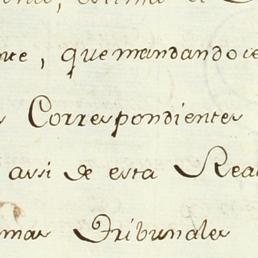 nte, que mandando ce
Correspondientes
assi de esta Rea
mas Tribunales